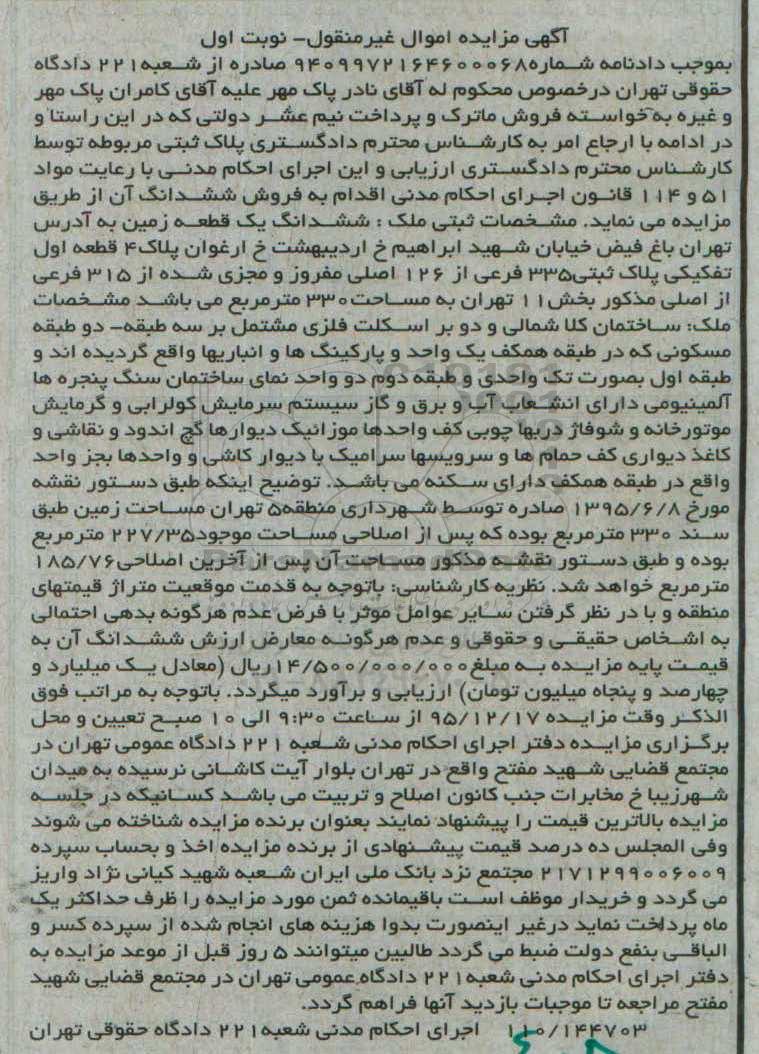 آگهی مزایده اموال غیرمنقول- نوبت اول
بموجب دادنامه شماره۹۴۰۹۹۷۲۱۶۴۶۰۰۰۶۸ صادره از شعبه۲۲۱ دادگاه
حقوقی تهران درخصوص محکوم له آقای نادر پاک مهر علیه آقای کامران پاک مهر
و غیره به خواسته فروش ماترک و پرداخت نیم عشر دولتی که در این راستا و
در ادامه با ارجاع امر به کارشناس محترم دادگستری پلاک ثبتی مربوطه توسط
کارشناس محترم دادگستری ارزیابی و این اجرای احکام مدنی با رعایت مواد
۵۱ و ۱۱۴ قانون اجرای احکام مدنی اقدام به فروش ششدانگ آن از طریق
مزایده می نماید. مشخصات ثبتی ملک : ششدانگ یک قطعه زمین به آدرس
تهران باغ فیض خیابان شهید ابراهیم خ اردیبهشت خ ارغوان پلاک۴ قطعه اول
تفکیکی پلاک ثبتی۳۳۵ فرعی از ۱۲۶ اصلی مفروز و مجزی شده از ۳۱۵ فرعی
از اصلی مذکور بخش۱۱ تهران به مساحت۳۳۰ مترمربع می باشد مشخصات
ملک: ساختمان کلا شمالی و دو بر اسکلت فلزی مشتمل بر سه طبقه- دو طبقه
مسکونی که در طبقه همکف یک واحد و پارکینگ ها و انباریها واقع گردیده اند و
طبقه اول بصورت تک واحدی و طبقه دوم دو واحد نمای ساختمان سنگ پنجره ها
آلمینیومی دارای انشعاب آب و برق و گاز سیستم سرمایش کولرابی و گرمایش
موتورخانه و شوفاژ دربها چوبی کف واحدها موزائیک دیوارها گچ اندود و نقاشی و
کاغذ دیواری کف حمام ها و سرویسها سرامیک با دیوار کاشی و واحدها بجز واحد
واقع در طبقه همکف دارای سکنه می باشد. توضیح اینکه طبق دستور نقشه
مورخ ۱۳۹۵/۶/۸ صادره توسط شهرداری منطقه۵ تهران مساحت زمین طبق
سند ۳۳۰ مترمربع بوده که پس از اصلاحی مساحت موجود۲۲۷/۳۵ مترمربع
بوده و طبق دستور نقشه مذکور مساحت آن پس از آخرین اصلاحی۱۸۵/۷۶
مترمربع خواهد شد. نظریه کارشناسی: باتوجه به قدمت موقعیت متراژ قیمتهای
منطقه و با در نظر گرفتن سایر عوامل موثر با فرض عدم هرگونه بدهی احتمالی
به اشخاص حقیقی و حقوقی و عدم هرگونه معارض ارزش ششدانگ آن به
قیمت پایه مزایده به مبلغ۱۴/۵۰۰/۰۰۰/۰۰۰ریال (معادل یک میلیارد و
چهارصد و پنجاه میلیون تومان) ارزیابی و برآورد میگردد. باتوجه به مراتب فوق
الذکر وقت مزایده ۹۵/۱۲/۱۷ از ساعت ۹:۳۰ الی ۱۰ صبح تعیین و محل
برگزاری مزایده دفتر اجرای احکام مدنی شعبه ۲۲۱ دادگاه عمومی تهران در
مجتمع قضایی شهید مفتح واقع در تهران بلوار آیت کاشانی نرسیده به میدان
شهرزیبا خ مخابرات جنب کانون اصلاح و تربیت می باشد کسانیکه در جلسه
مزایده بالاترین قیمت را پیشنهاد نمایند بعنوان برنده مزایده شناخته می شوند
وفی المجلس ده درصد قیمت پیشنهادی از برنده مزایده اخذ و بحساب سپرده
۲۱۷۱۲۹۹۰۰۶۰۰۹ مجتمع نزد بانک ملی ایران شعبه شهید کیانی نژاد واریز
می گردد و خریدار موظف است باقیمانده ثمن مورد مزایده را ظرف حداکثر یک
ماه پرداخت نماید درغیر اینصورت بدوا هزینه های انجام شده از سپرده کسر و
الباقی بنفع دولت ضبط می گردد طالبین میتوانند ۵ روز قبل از موعد مزایده به
دفتر اجرای احکام مدنی شعبه۲۲۱ دادگاه عمومی تهران در مجتمع قضایی شهید
مفتح مراجعه تا موجبات بازدید آنها فراهم گردد.
۱۱۰/۱۴۴۷۰۳ اجرای احکام مدنی شعبه۲۲۱ دادگاه حقوقی تهران